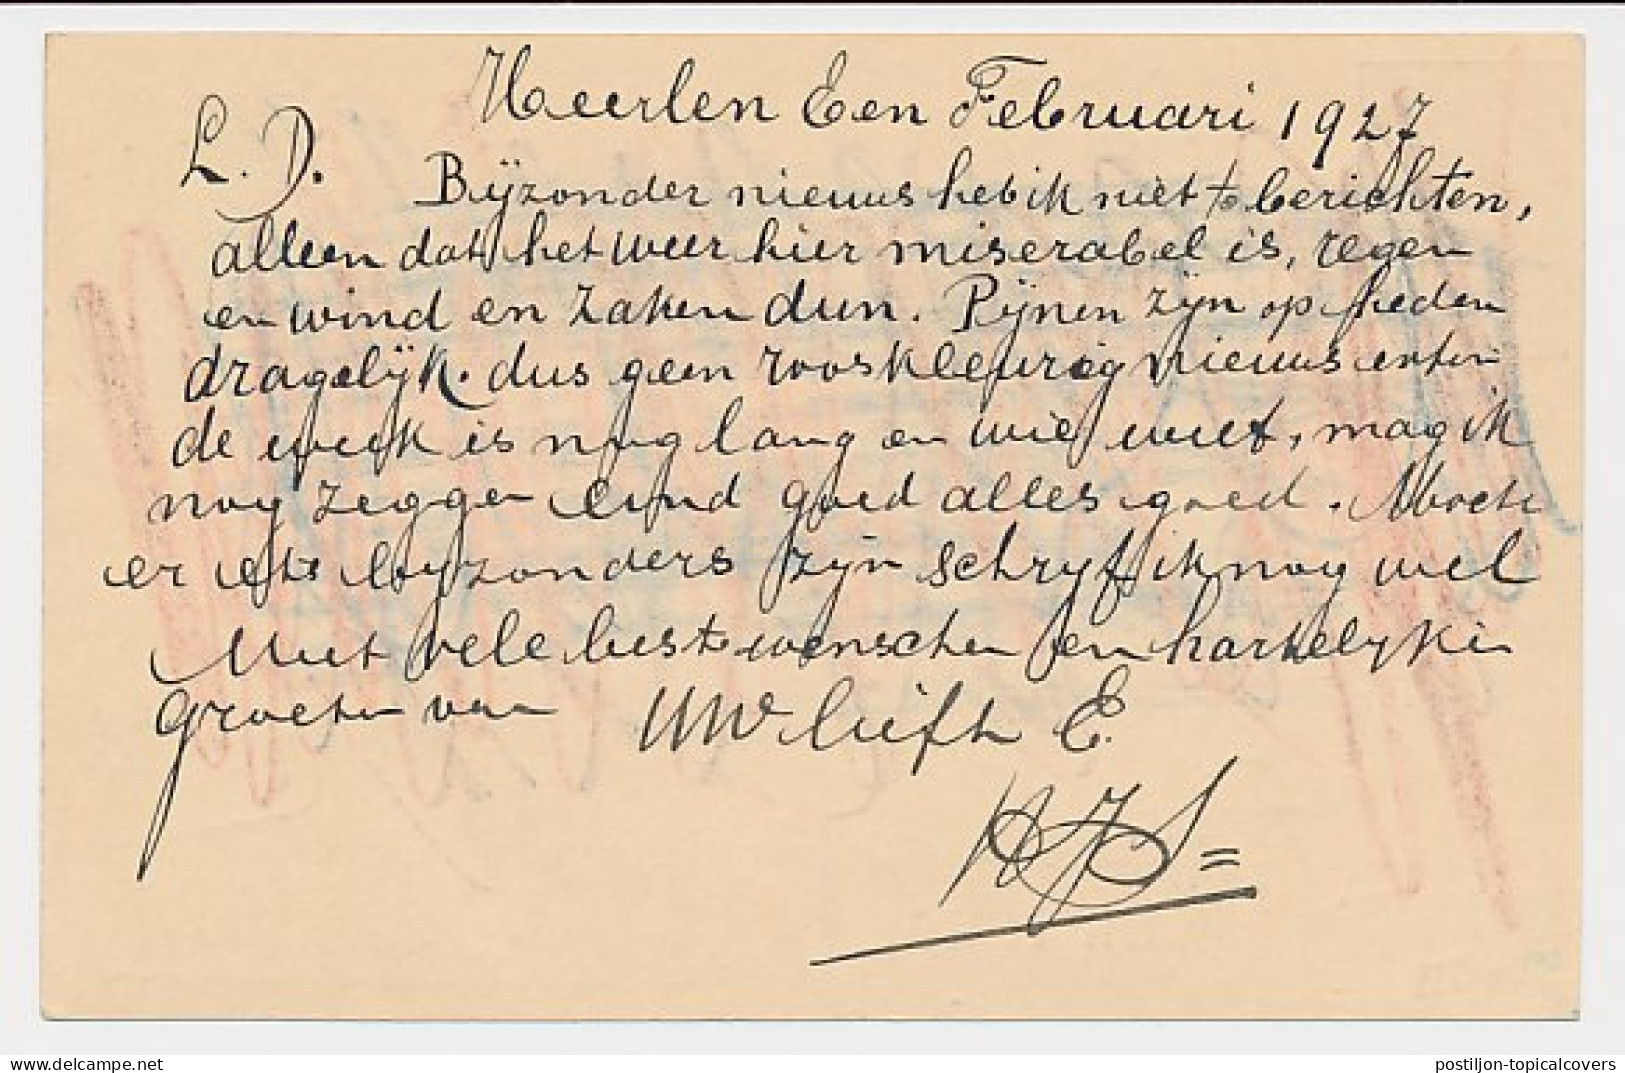 Heerlen Een Februari 1927
L. D.
Bijzonder nieuws heb ik niet te berichten,
alleen dat het weer hier miserabel is, regen
en wind en zaken dun. Pijnen zijn op heden
dragelijk. dus geen rooskleurig nieuws enfin
de week is nog lang en wie weet, mag ik
nog zeggen eind goed alles goed. Mocht
er iets byzonders zijn schryf ik nog wel
Met vele beste wenschen en hartelyke
groeten van Uw liefh E.
postiljon-topicalcovers
www.delcampe.net